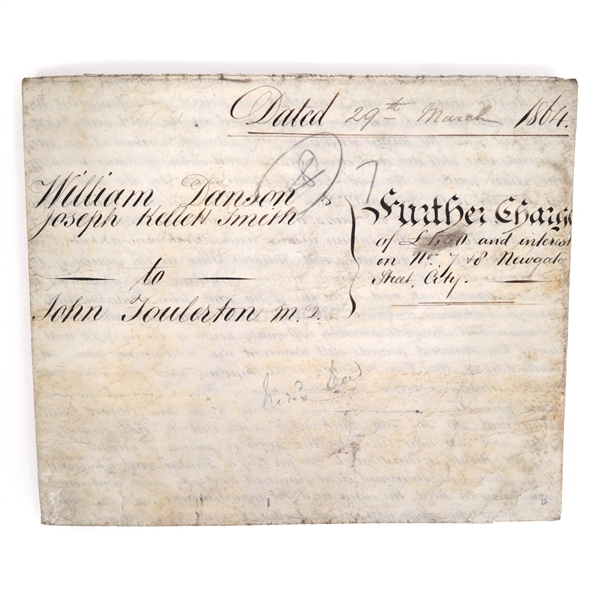 Dated 29th March 1864.
William Danson &
Joseph Kellett Smith
to
John Foulerton M.D.
Further Charge
of £ and interest
on Nos. 7 & 8 Newgate
Street, City.